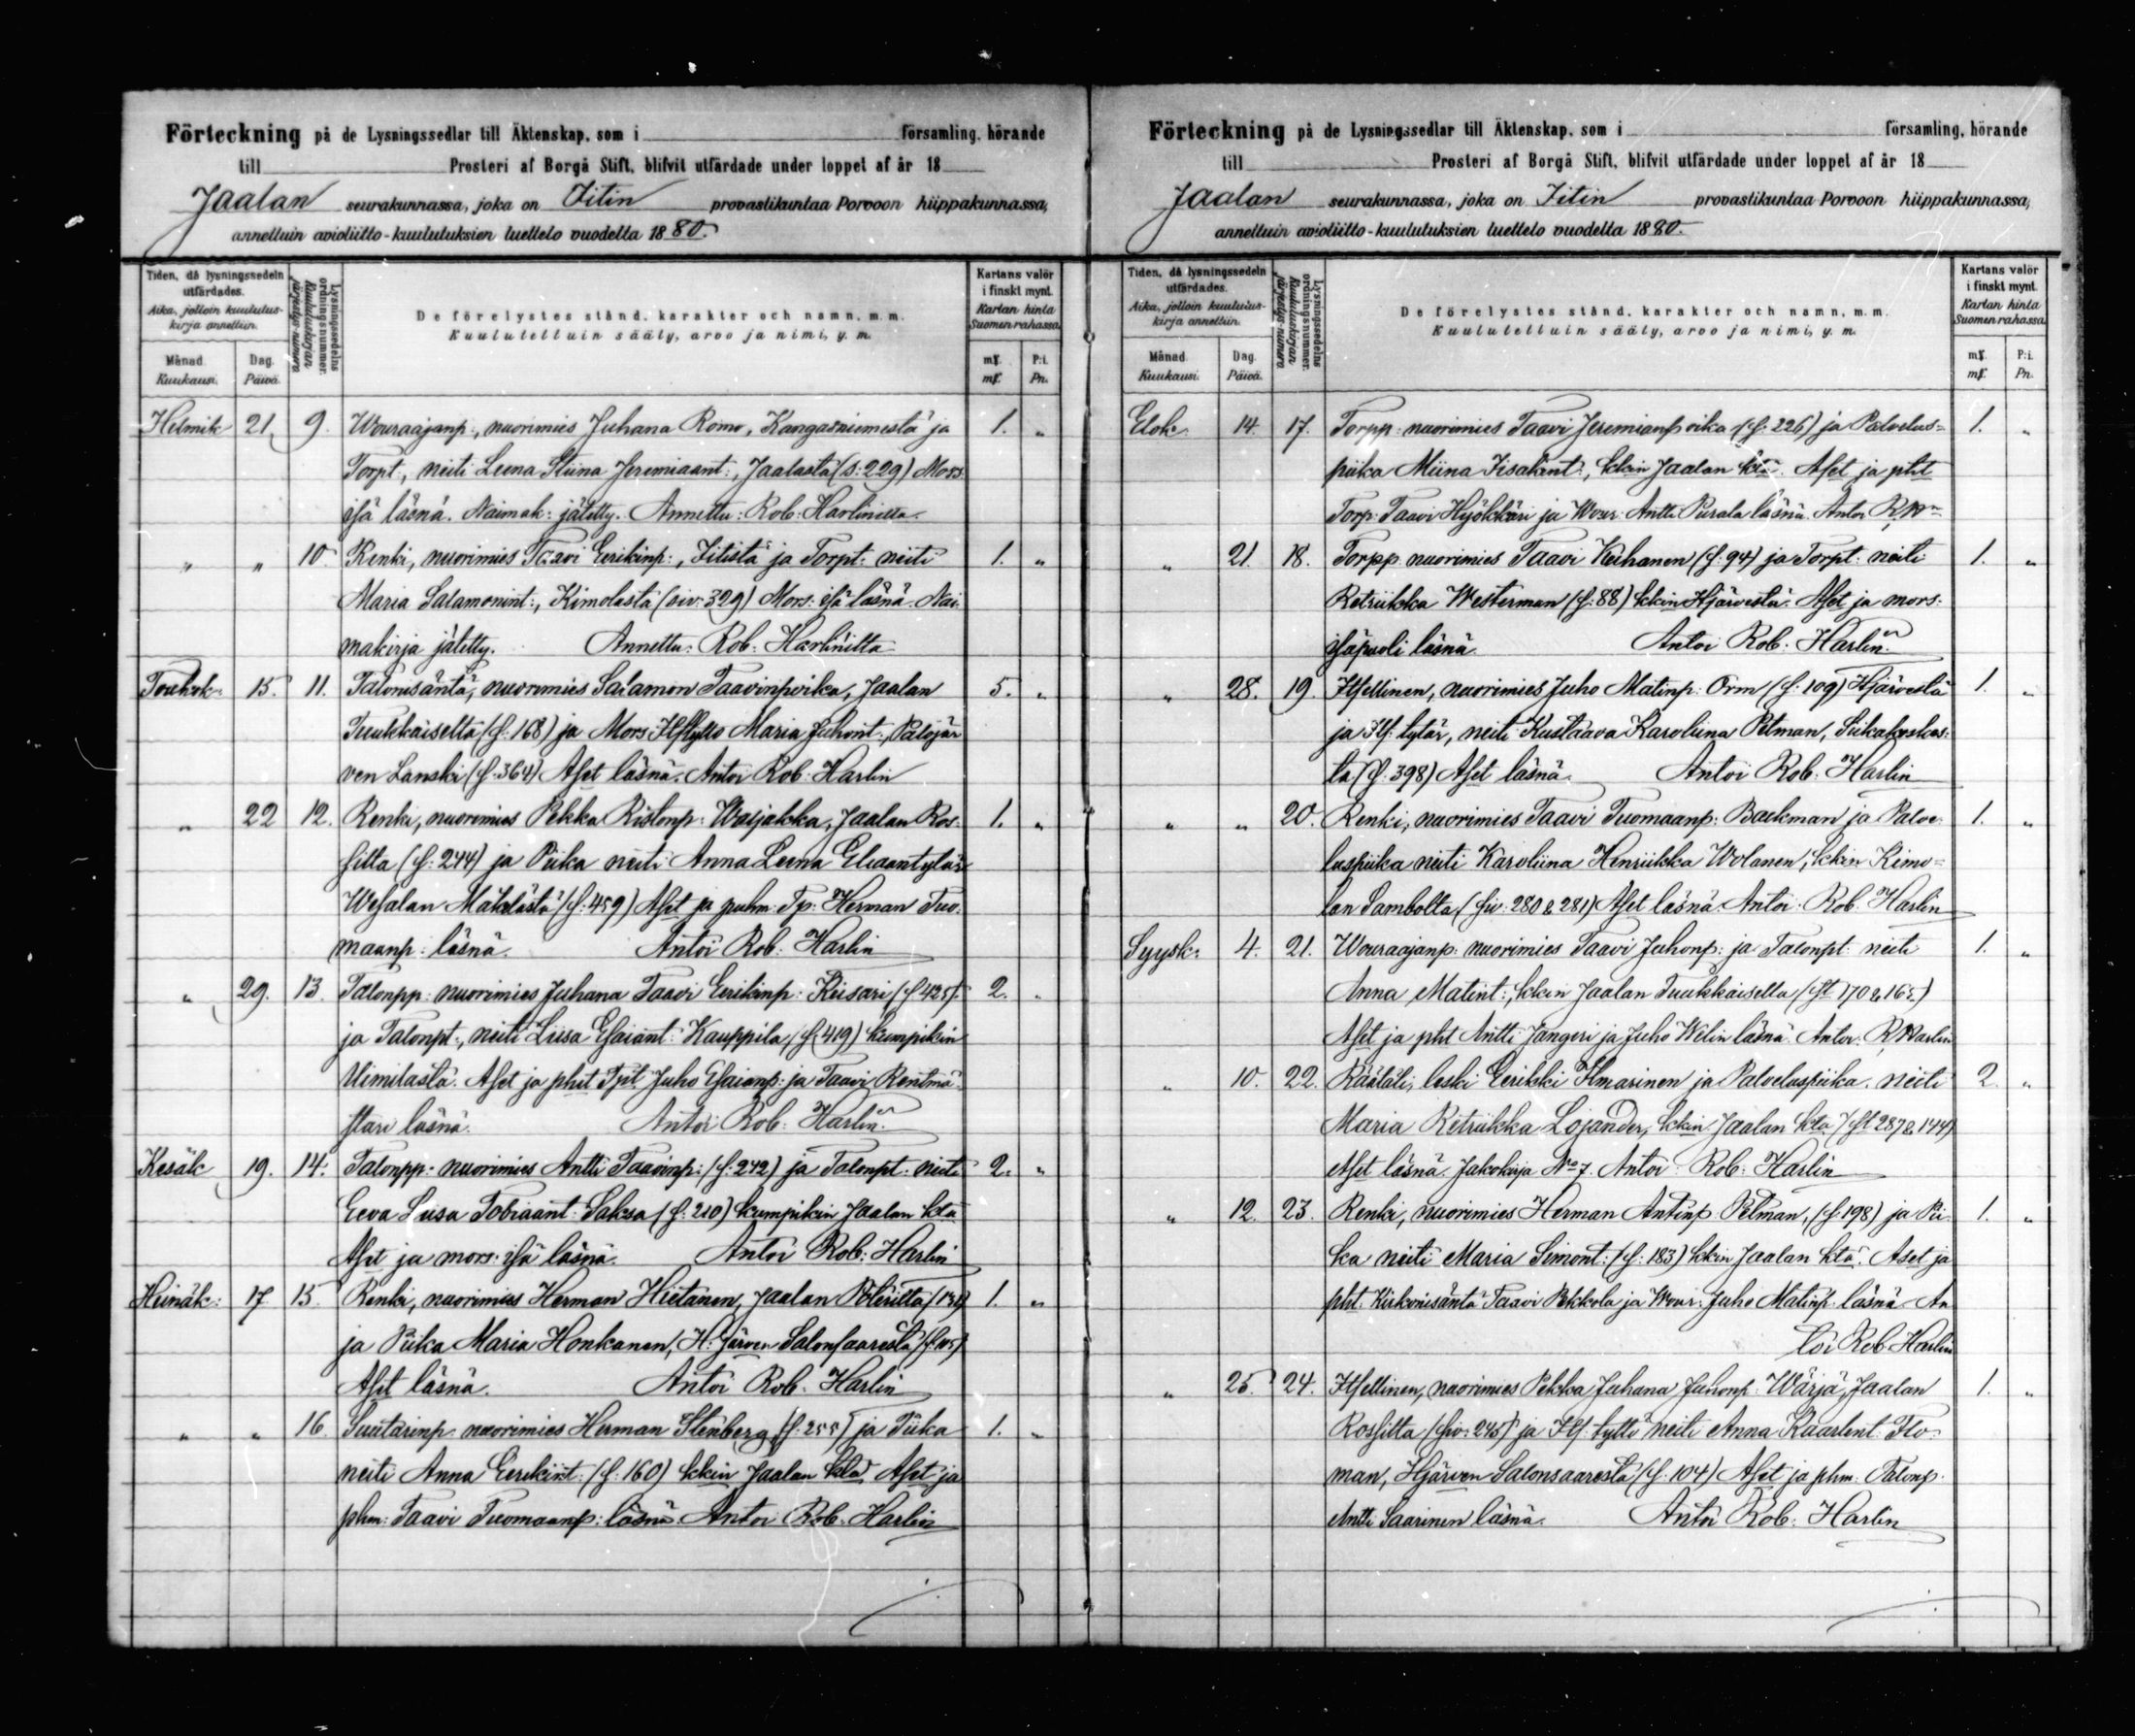 Förteckning på de Lysningssedlar till Äktenskap, som i församling, hörande
till Prosteri af Borgå Stift, blifvit utfärdade under loppet af år 18
Jaalan seurakunnassa, joka on Iitin provastikuntaa Porvoon hiippakunnassa,
annettuin avioliitto-kuulutuksien luettelo vuodelta 1880.
Tiden, då lysningssedeln utfärdades.
Aika, jolloin kuulutuskirja annettiin.
Månad. Kuukausi.
Dag. Päivä.
Lysningssedelns ordningsnummer.
Kuulutuskirjan järjestys-numero
De förelystes stånd, karakter och namn, m. m.
Kuulutelluin sääly, arvo ja nimi, y. m.
Kartans valör i finskt mynt.
Kartan hinta Suomen rahassa
mf. P:i.
mf. Pn.
Helmik 21 9. Wouraajanp:, nuorimies Juhana Romo, Kangasniemestä ja 1. "
Torpt., neiti Leena Stiina Jeremiaant:, Jaalasta (s: 229) Mors
isä läsnä. Naimak: jätetty. Annettu: Rob: Harlinilta.
" " 10 Renki, nuorimies Taavi Eerikinp:, Iitistä ja Torpt: neiti 1. "
Maria Salamonint:, Kimolasta (siv: 329) Mors: isä läsnä. Nai-
makirja jätetty. Annettu: Rob: Harlinilta
Toukok: 15. 11. Talonisäntä, nuorimies Salamon Taavinpoika, Jaalan 5. "
Tuukkaiselta (s: 168) ja Mors Itstytto Maria Juhont:, Palojär
ven Lanski (s: 364) Aset läsnä. Antoi Rob: Harlin
" 22 12. Renki, nuorimies Pekka Ristonp: Warjakka, Jaalan Ros- 1. "
silta (s: 244) ja Piika neiti Anna Leena Eliaantytär
Wesalan Mäkelästä (s: 459) Aset ja puhm: Tp: Herman Tuo-
maanp: läsnä. Antoi Rob: Harlin
" 29. 13. Talonpp: nuorimies Juhana Taavi Eerikinp: Keisari (s 425) 2. "
ja Talonpt:, neiti Liisa Esaiant: Kauppila (s: 419) kumpikin
Uimilasta. Aset ja phet Tpt Juho Esaianp: ja Taavi Rentmä-
stari läsnä. Antoi Rob: Harlin.
Kesäk 19. 14: Talonpp: nuorimies Antti Taavinp: (s: 242) ja Talonpt: neiti 2. "
Eeva Liisa Tobiaant: Saksa (s: 210) kumpikin Jaalan kta
Aset ja mors: isä läsnä. Antoi Rob: Harlin
Heinäk: 17. 15. Renki, nuorimies Herman Hietanen, Jaalan 1. "
ja Piika Maria Honkanen, H: järven Salonsaaresta
Aset läsnä. Antoi Rob: Harlin
" " 16. Suutarinp: nuorimies Herman Stenberg (s: 255) ja Piika 1. "
neiti Anna Eerikint: (s: 160) kkin Jaalan kta. Aset ja
phm: Taavi Tuomaanp: läsnä. Antoi Rob: Harlin
Förteckning på de Lysningssedlar till Äktenskap, som i församling, hörande
till Prosteri af Borgå Stift, blifvit utfärdade under loppet af år 18
Jaalan seurakunnassa, joka on Iitin provastikuntaa Porvoon hiippakunnassa,
annettuin avioliitto-kuulutuksien luettelo vuodelta 1880.
Tiden, då lysningssedeln utfärdades.
Aika, jolloin kuulutuskirja annettiin.
Månad. Kuukausi.
Dag. Päivä.
Lysningssedelns ordningsnummer.
Kuulutuskirjan järjestys-numero
De förelystes stånd, karakter och namn, m. m.
Kuulutelluin sääly, arvo ja nimi, y. m.
Kartans valör i finskt mynt.
Kartan hinta Suomen rahassa
mf. P:i.
mf. Pn.
Elok: 14. 17. Torpp: nuorimies Taavi Jeremianpoika (s: 226) ja Palvelus= 1. "
piika Miina Iisakint:, kkin Jaalan kta. Aset ja phet
Torp: Taavi Hyökkäri ja Wour: Antti Purala läsnä. Antoi
" 21. 18. Torpp: nuorimies Taavi Keihanen (s: 94) ja Torpt: neiti 1. "
Retriikka Westerman (s: 88) kkin Hjärvestä. Aset ja mors:
isäpuoli läsnä. Antoi Rob: Harlin.
" 28. 19. Itsellinen, nuorimies Juho Matinp: Orm (s: 109) Hjärvestä 1. "
ja Its: tytär, neiti Kustaava Karoliina Petman, Siikakoskes-
ta (s: 398) Aset läsnä. Antoi Rob: Harlin
" " 20. Renki, nuorimies Taavi Tuomaanp: Backman ja Palve- 1. "
luspiika neiti Karoliina Henriikka Wolanen, kkin Kimo=
lan Sambolta (siv: 280 & 281) Aset läsnä. Antoi Rob: Harlin
Syysk: 4. 21. Wouraajanp: nuorimies Taavi Juhonp: ja Talonpt: neiti 1. "
Anna Matint:, kkin Jaalan Tuukkaiselta (st 170 & 165)
Aset ja pht Antti Jangeri ja Juho Welin läsnä. Antoi R, Harlin
" 10. 22. Räätäli, leski Eerikki Ilmarinen ja Palveluspiika, neiti 2. "
Maria Retriikka Lojander, kkin Jaalan kta (st 287 & 144)
Aset läsnä. Jakokirja No 7. Antoi Rob: Harlin
" 12. 23. Renki, nuorimies Herman Antinp: Petman, (s: 198) ja Pii- 1. "
ka neiti Maria Simont: (s: 183) kkin Jaalan kta. Aset ja
pht: Kirkonisäntä Taavi Pekkola ja Wour: Juho Matinp: läsnä. An
toi Rob Harlin
" 25. 24. Itsellinen, nuorimies Pekka Juhana Juhonp: Wärjä, Jaalan 1. "
Rossilta (siv: 245) ja Its: tyttö neiti Anna Kaarlent: Flo-
man, Hjärven Salonsaaresta (s: 104) Aset ja phm: Talonp:
Antti Saarinen läsnä. Antoi Rob: Harlin